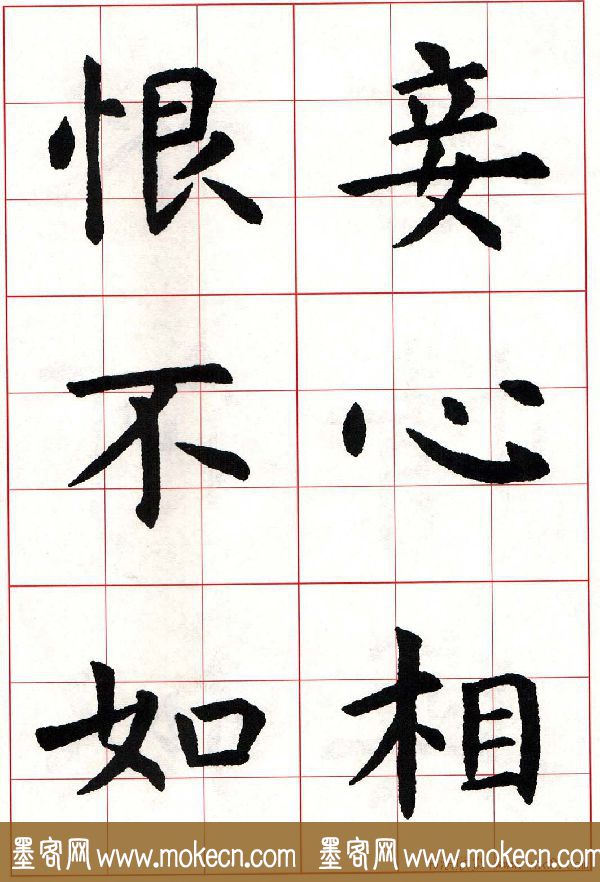 妾心相
恨不如
墨客网 www.mokecn.com 墨客网 www.mokecn.com